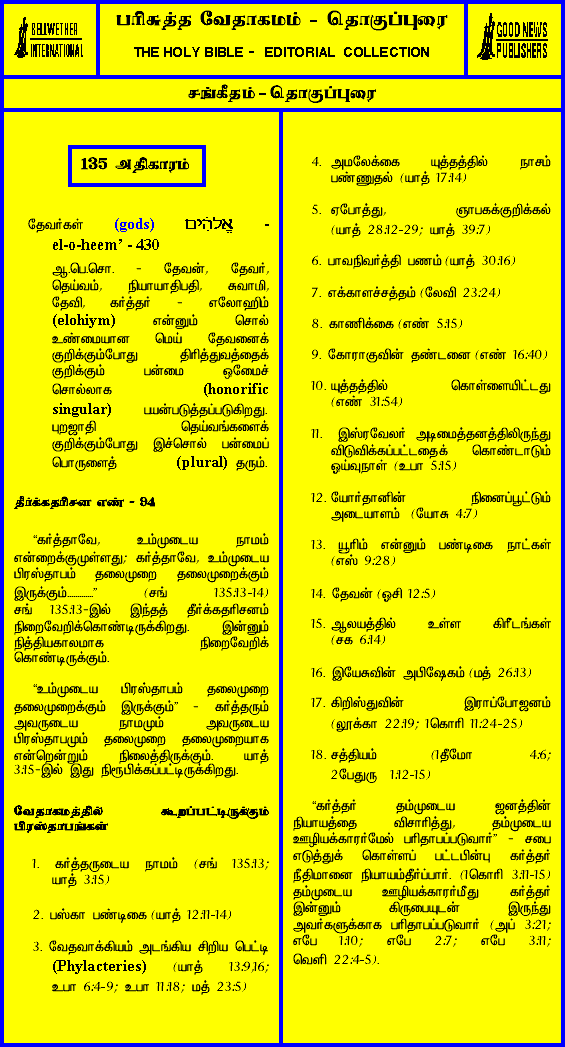 BELLWETHER
INTERNATIONAL
பரிசுத்த வேதாகமம் - தொகுப்புரை
THE HOLY BIBLE - EDITORIAL COLLECTION
GOOD NEWS
PUBLISHERS
சங்கீதம் - தொகுப்புரை
135 அதிகாரம்
தேவர்கள் (gods) אֱלֹהִים -
el-o-heem’ - 430
ஆ.பெ.சொ. - தேவன், தேவர்,
தெய்வம், நியாயாதிபதி, சுவாமி,
தேவி, கர்த்தர் - எலோஹிம்
(elohiym) என்னும் சொல்
உண்மையான மெய் தேவனைக்
குறிக்கும்போது திரித்துவத்தைக்
குறிக்கும் பன்மை ஒமைச்
சொல்லாக (honorific
singular) பயன்படுத்தப்படுகிறது.
புறஜாதி தெய்வங்களைக்
குறிக்கும்போது இச்சொல் பன்மைப்
பொருளைத் (plural) தரும்.
தீர்க்கதரிசன எண் - 94
“கர்த்தாவே, உம்முடைய நாமம்
என்றைக்குமுள்ளது; கர்த்தாவே, உம்முடைய
பிரஸ்தாபம் தலைமுறை தலைமுறைக்கும்
இருக்கும்.............” (சங் 135:13-14)
சங் 135:13-இல் இந்தத் தீர்க்கதரிசனம்
நிறைவேறிக்கொண்டிருக்கிறது. இன்னும்
நித்தியகாலமாக நிறைவேறிக்
கொண்டிருக்கும்.
“உம்முடைய பிரஸ்தாபம் தலைமுறை
தலைமுறைக்கும் இருக்கும்” - கர்த்தரும்
அவருடைய நாமமும் அவருடைய
பிரஸ்தாபமும் தலைமுறை தலைமுறையாக
என்றென்றும் நிலைத்திருக்கும். யாத்
3:15-இல் இது நிரூபிக்கப்பட்டிருக்கிறது.
வேதாகமத்தில் கூறப்பட்டிருக்கும்
பிரஸ்தாபங்கள்
1. கர்த்தருடைய நாமம் (சங் 135:13;
யாத் 3:15)
2. பஸ்கா பண்டிகை (யாத் 12:11-14)
3. வேதவாக்கியம் அடங்கிய சிறிய பெட்டி
(Phylacteries) (யாத் 13:9,16;
உபா 6:4-9; உபா 11:18; மத் 23:5)
4. அமலேக்கை யுத்தத்தில் நாசம்
பண்ணுதல் (யாத் 17:14)
5. ஏபோத்து, ஞாபகக்குறிக்கல்
(யாத் 28:12-29; யாத் 39:7)
6. பாவநிவர்த்தி பணம் (யாத் 30:16)
7. எக்காளச்சத்தம் (லேவி 23:24)
8. காணிக்கை (எண் 5:15)
9. கோராகுவின் தண்டனை (எண் 16:40)
10. யுத்தத்தில் கொள்ளையிட்டது
(எண் 31:54)
11. இஸ்ரவேலர் அடிமைத்தனத்திலிருந்து
விடுவிக்கப்பட்டதைக் கொண்டாடும்
ஓய்வுநாள் (உபா 5:15)
12. யோர்தானின் நினைப்பூட்டும்
அடையாளம் (யோசு 4:7)
13. யூரிம் என்னும் பண்டிகை நாட்கள்
(எஸ் 9:28)
14. தேவன் (ஓசி 12:5)
15. ஆலயத்தில் உள்ள கிரீடங்கள்
(சக 6:14)
16. இயேசுவின் அபிஷேகம் (மத் 26:13)
17. கிறிஸ்துவின் இராப்போஜனம்
(லூக்கா 22:19; 1கொரி 11:24-25)
18. சத்தியம் (1தீமோ 4:6;
2பேதுரு 1:12-15)
“கர்த்தர் தம்முடைய ஜனத்தின்
நியாயத்தை விசாரித்து, தம்முடைய
ஊழியக்காரர்மேல் பரிதாபப்படுவார்” - சபை
எடுத்துக் கொள்ளப் பட்டபின்பு கர்த்தர்
நீதிமானை நியாயம்தீர்ப்பார். (1கொரி 3:11-15)
தம்முடைய ஊழியக்காரர்மீது கர்த்தர்
இன்னும் கிருபையுடன் இருந்து
அவர்களுக்காக பரிதாபப்படுவார் (அப் 3:21;
எபே 1:10; எபே 2:7; எபே 3:11;
வெளி 22:4-5).